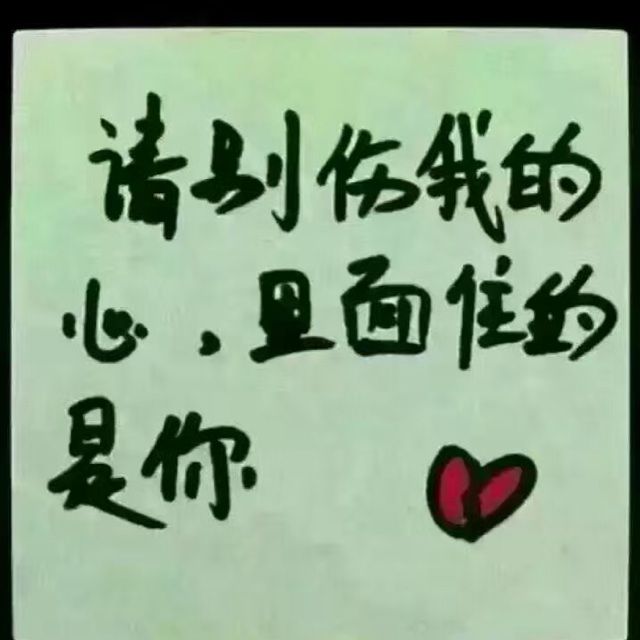 请别伤我的
心，且面住的
是你